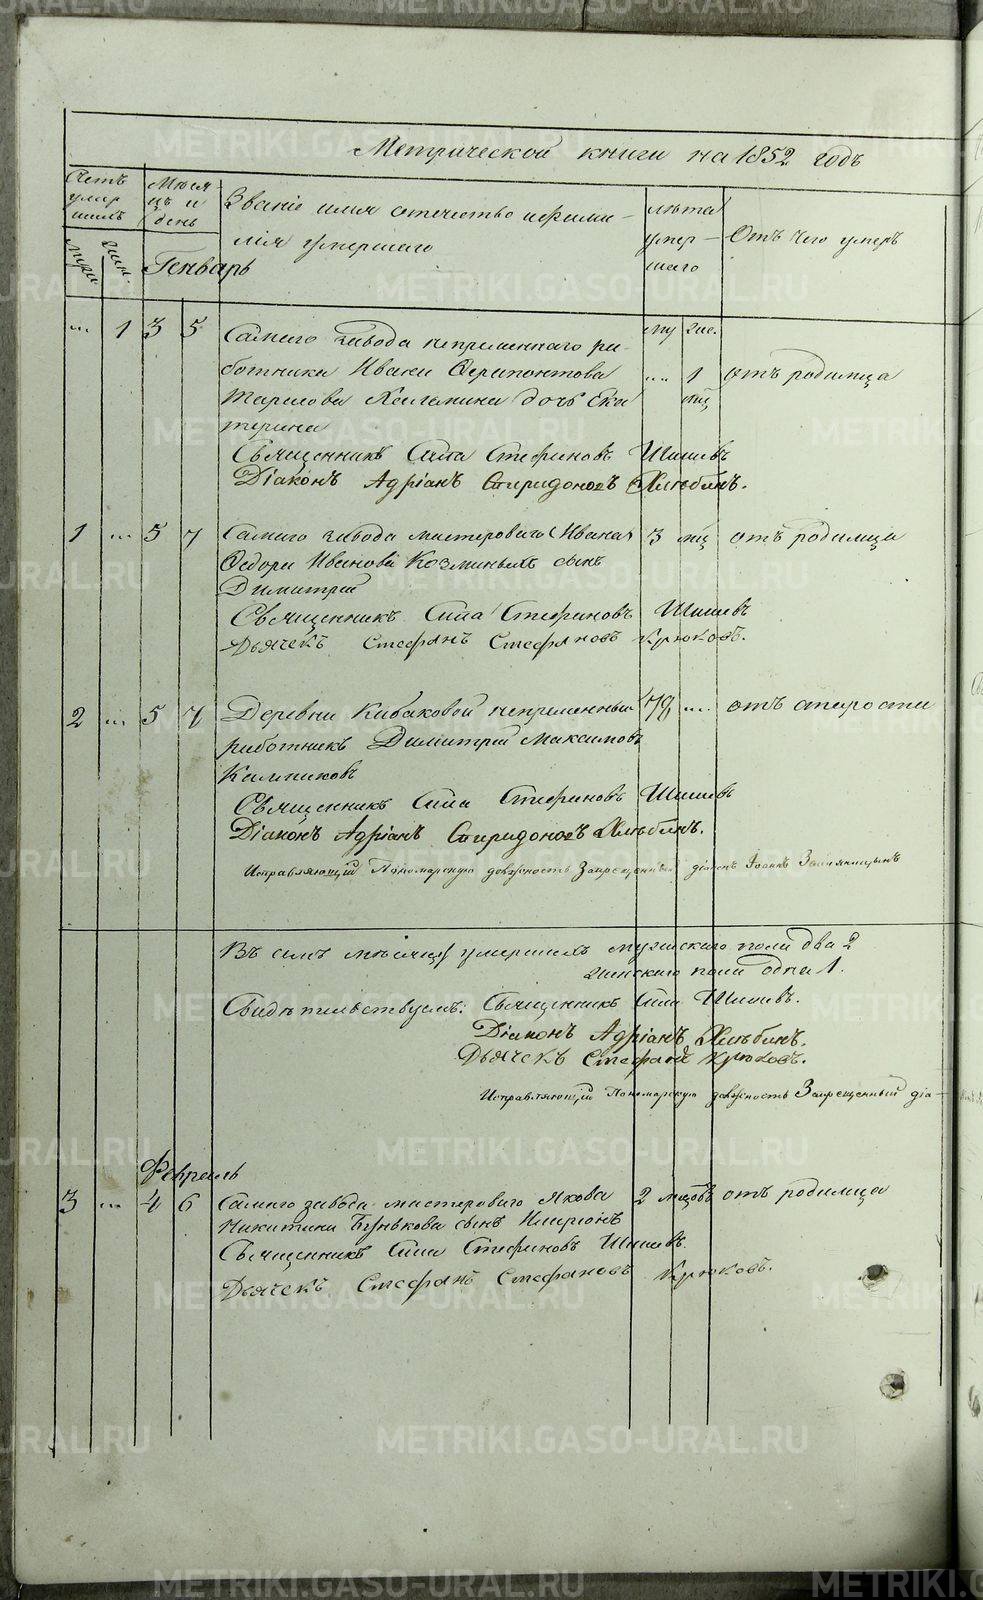 Метрической книги на 1852 годъ
Счетъ умершихъ
Мѣсяцъ и день
Званіе имя отчество и фамилія умершаго
лѣта умершаго
Отъ чего умеръ
муж. жен.
Генварь
му жес.
... 1 3 5 Самаго завода непременнаго ра-
ботника Ивана Ферапонтова ... 1 отъ родимца
дочь Ека мц
терина
Священникъ Сила Стефановъ Шишевъ
Діаконъ Адріанъ Спиридоновъ Хлѣбинъ.
1 ... 5 7 Самаго завода мастероваго (Ивана) 3 мц отъ родимца
Федора Иванова Козминыхъ сынъ
Димитрій
Священникъ Сила Стефановъ Шишевъ
Дьячекъ Стефанъ Стефановъ Крюковъ.
2 ... 5 7 Деревни Кабаковой непременный 78 ... отъ старости
работникъ Димитрій Максимовъ
Калпиковъ
Священникъ Сила Стефановъ Шишевъ
Діаконъ Адріанъ Спиридоновъ Хлѣбинъ.
Исправляющій Пономарскую должность Запрещенный діаконъ Іоаннъ
Въ семъ мѣсяцѣ умершихъ мужескаго пола два 2
женскаго пола одна 1.
Свидѣтельствуемъ: Священникъ Сила Шишевъ.
Діаконъ Адріанъ Хлѣбинъ.
Дьячекъ Стефанъ Крюковъ.
Исправляющій Пономарскую должность Запрещенный діа-
Февраль
3 ... 4 6 Самаго завода мастероваго Якова 2 мцовъ отъ родимца
Никитина Бунькова сынъ Иларіонъ
Священникъ Сила Стефановъ Шишевъ.
Дьячекъ Стефанъ Стефановъ Крюковъ.
METRIKI.GASO-URAL.RU